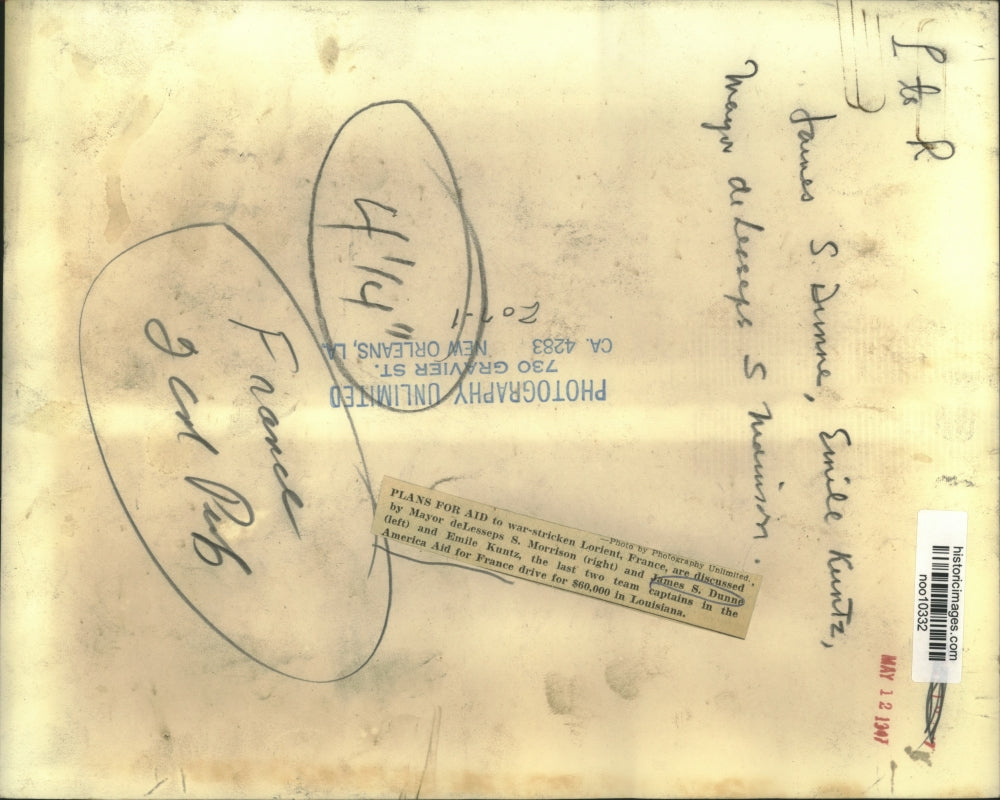 L to R
James S. Dunne, Emile Kuntz,
Mayor deLesseps S Morrison.
4 1/4"
France
2 col Pub
207-1
PHOTOGRAPHY UNLIMITED
730 GRAVIER ST.
CA. 4283 NEW ORLEANS, LA.
—Photo by Photography Unlimited.
PLANS FOR AID to war-stricken Lorient, France, are discussed
by Mayor deLesseps S. Morrison (right) and James S. Dunne
(left) and Emile Kuntz, the last two team captains in the
America Aid for France drive for $60,000 in Louisiana.
MAY 12 1947
historicimages.com
noo10332